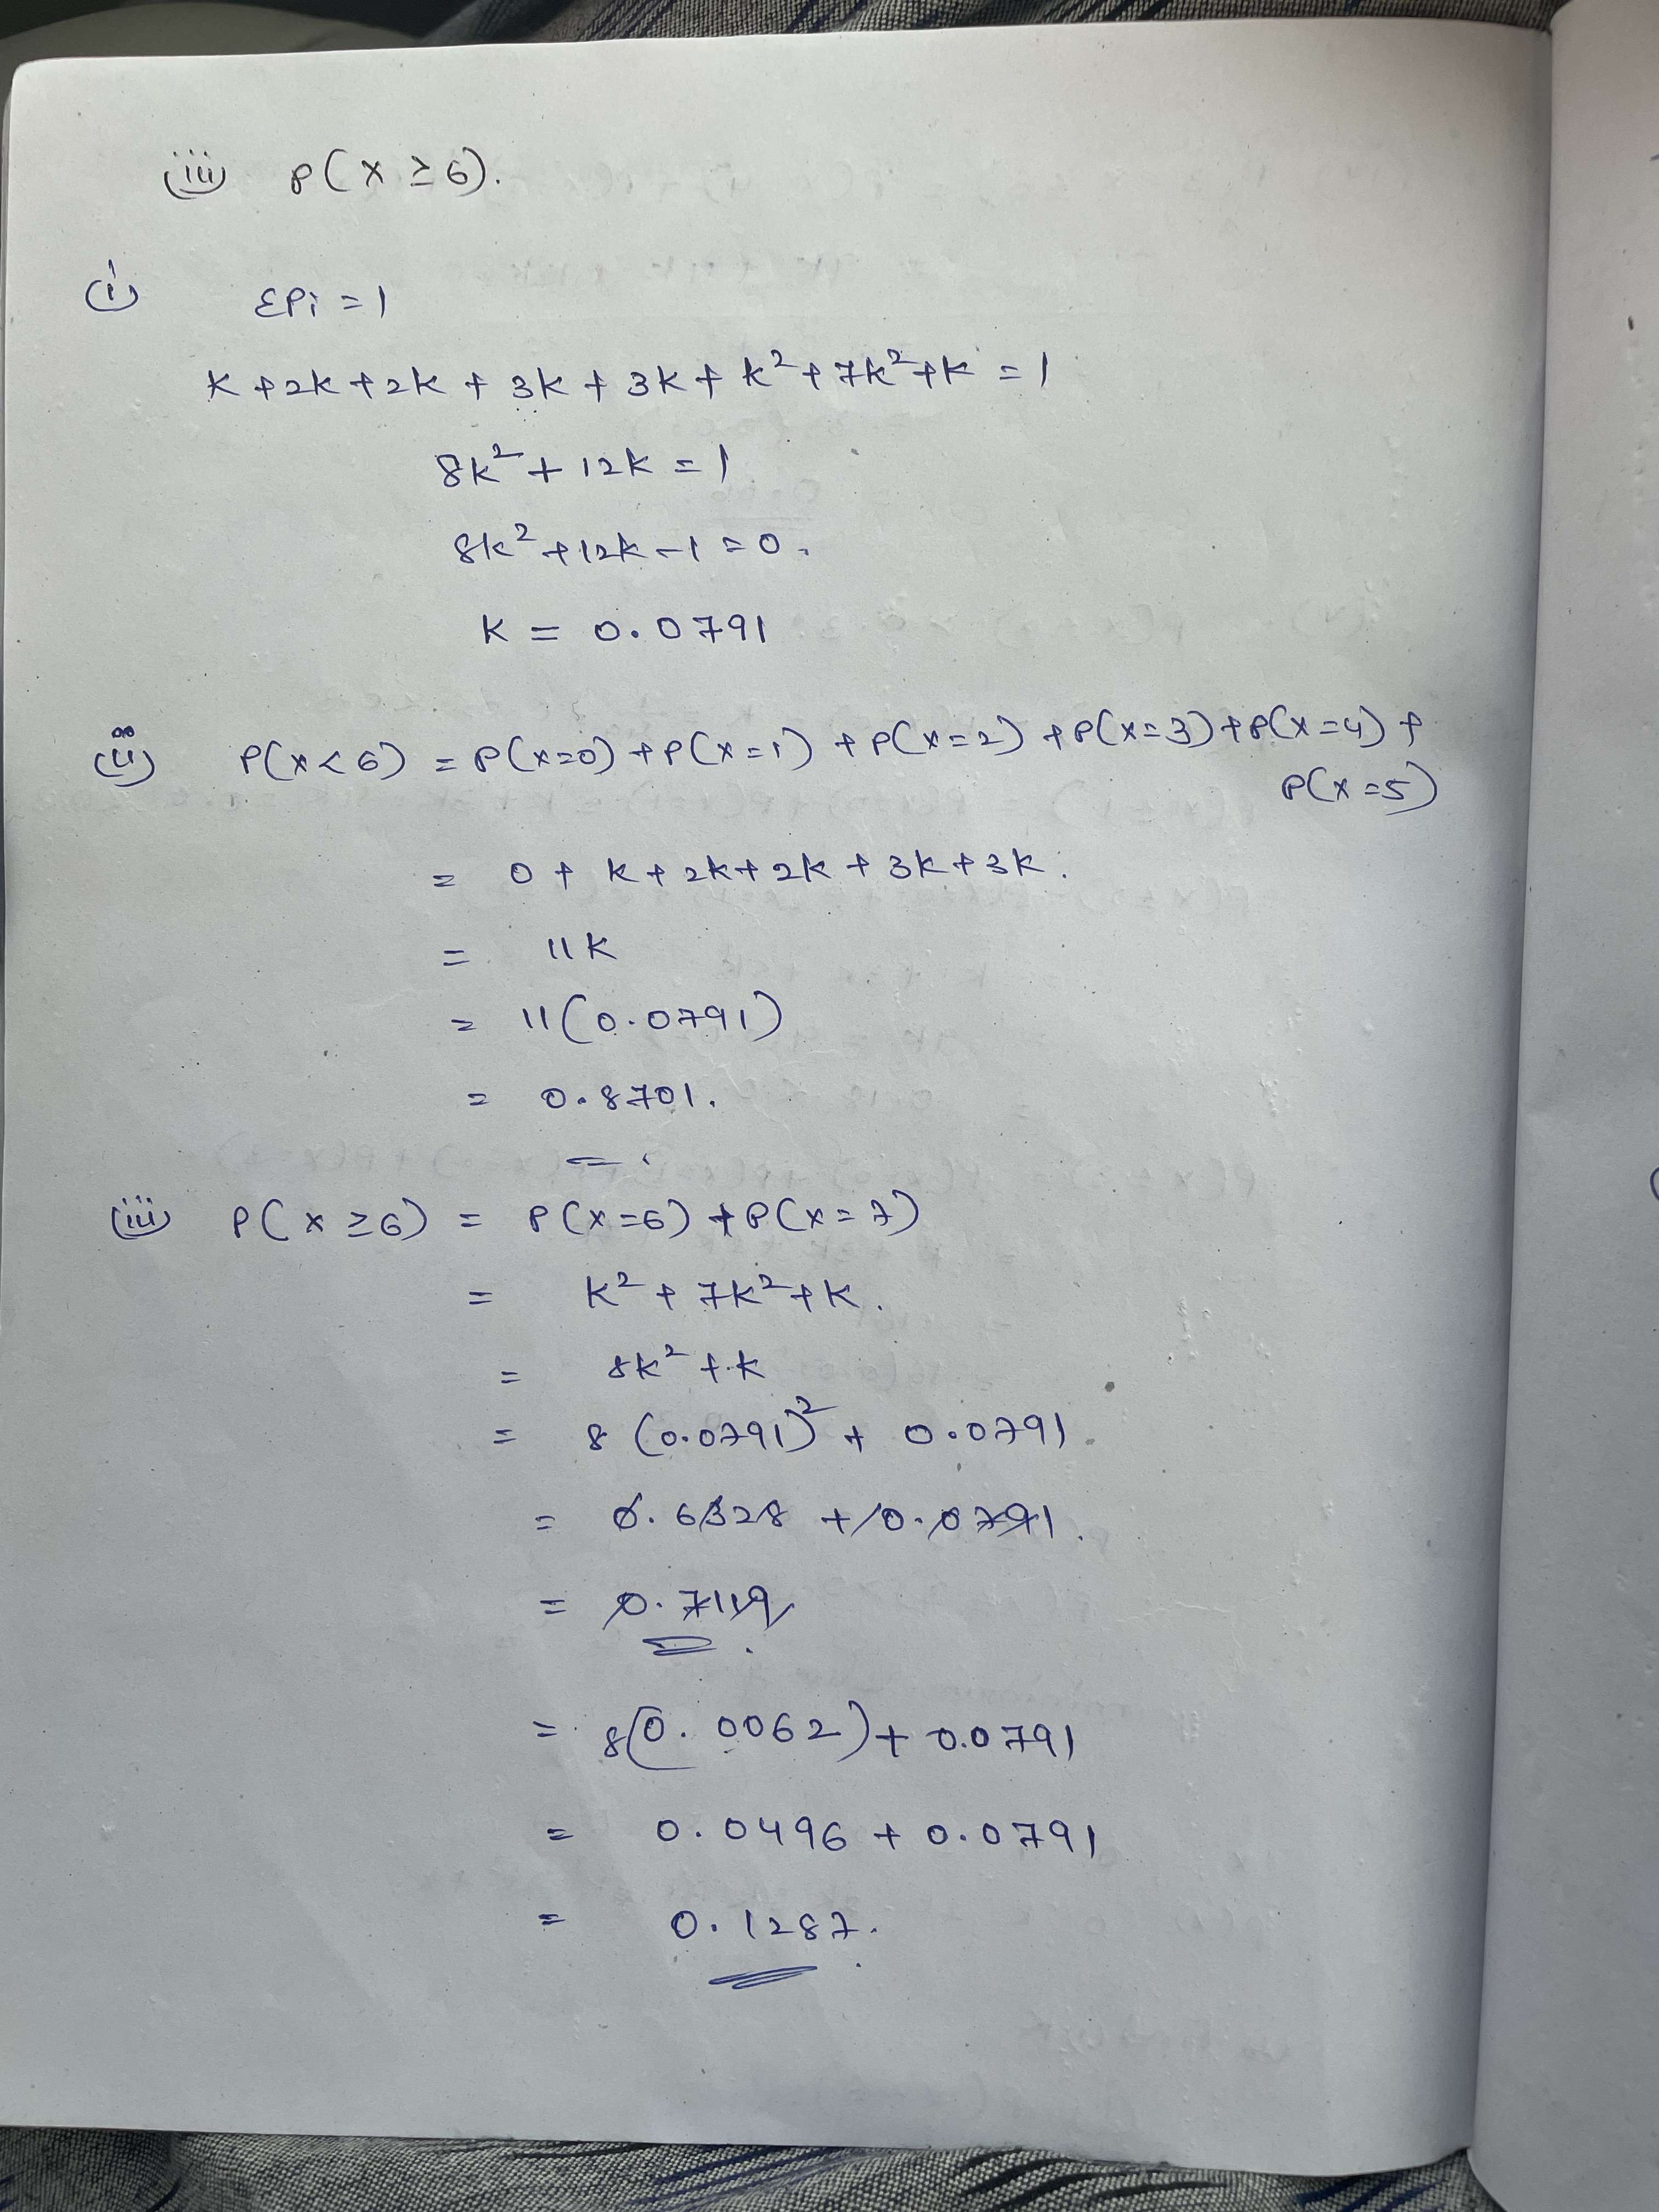 (iii) P(X ≥ 6).
(i) ΣPi = 1
K + 2K + 2K + 3K + 3K + K² + 7K² + K = 1
8K² + 12K = 1
8K² + 12K - 1 = 0.
K = 0.0791
(ii) P(X < 6) = P(X=0) + P(X=1) + P(X=2) + P(X=3) + P(X=4) +
P(X=5)
= 0 + K + 2K + 2K + 3K + 3K.
= 11K
= 11(0.0791)
= 0.8701.
(iii) P(X ≥ 6) = P(X=6) + P(X=7)
= K² + 7K² + K.
= 8K² + K
= 8(0.0791)² + 0.0791.
= 0.6328 + 0.0791.
= 0.7119
= 8(0.0062) + 0.0791
= 0.0496 + 0.0791
= 0.1287.